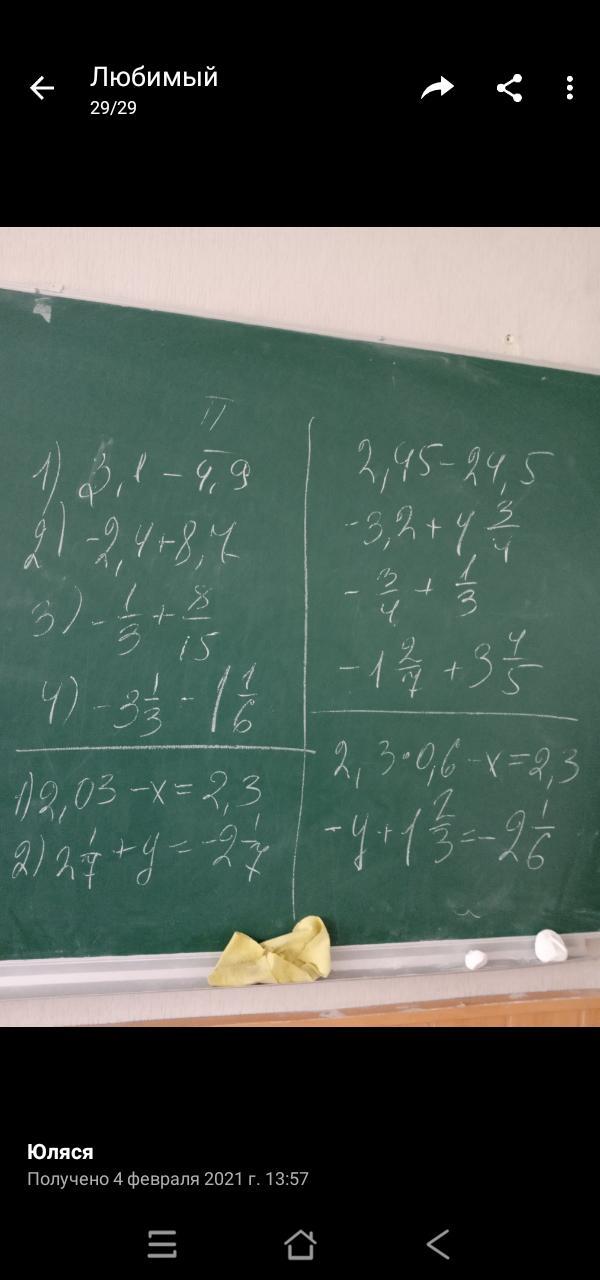 Любимый
29/29
II
1) 3,1 - 4,9
2) -2,4+8,7
3) - 1/3 + 8/15
4) -3 1/3 - 1 1/6
1) 2,03 - x = 2,3
2) 2 1/7 + y = -2 1/7
2,45 - 24,5
-3,2 + 4 3/4
- 3/4 + 1/3
-1 2/7 + 3 4/5
2,3·0,6 - x = 2,3
-y + 1 2/3 = -2 1/6
Юляся
Получено 4 февраля 2021 г. 13:57